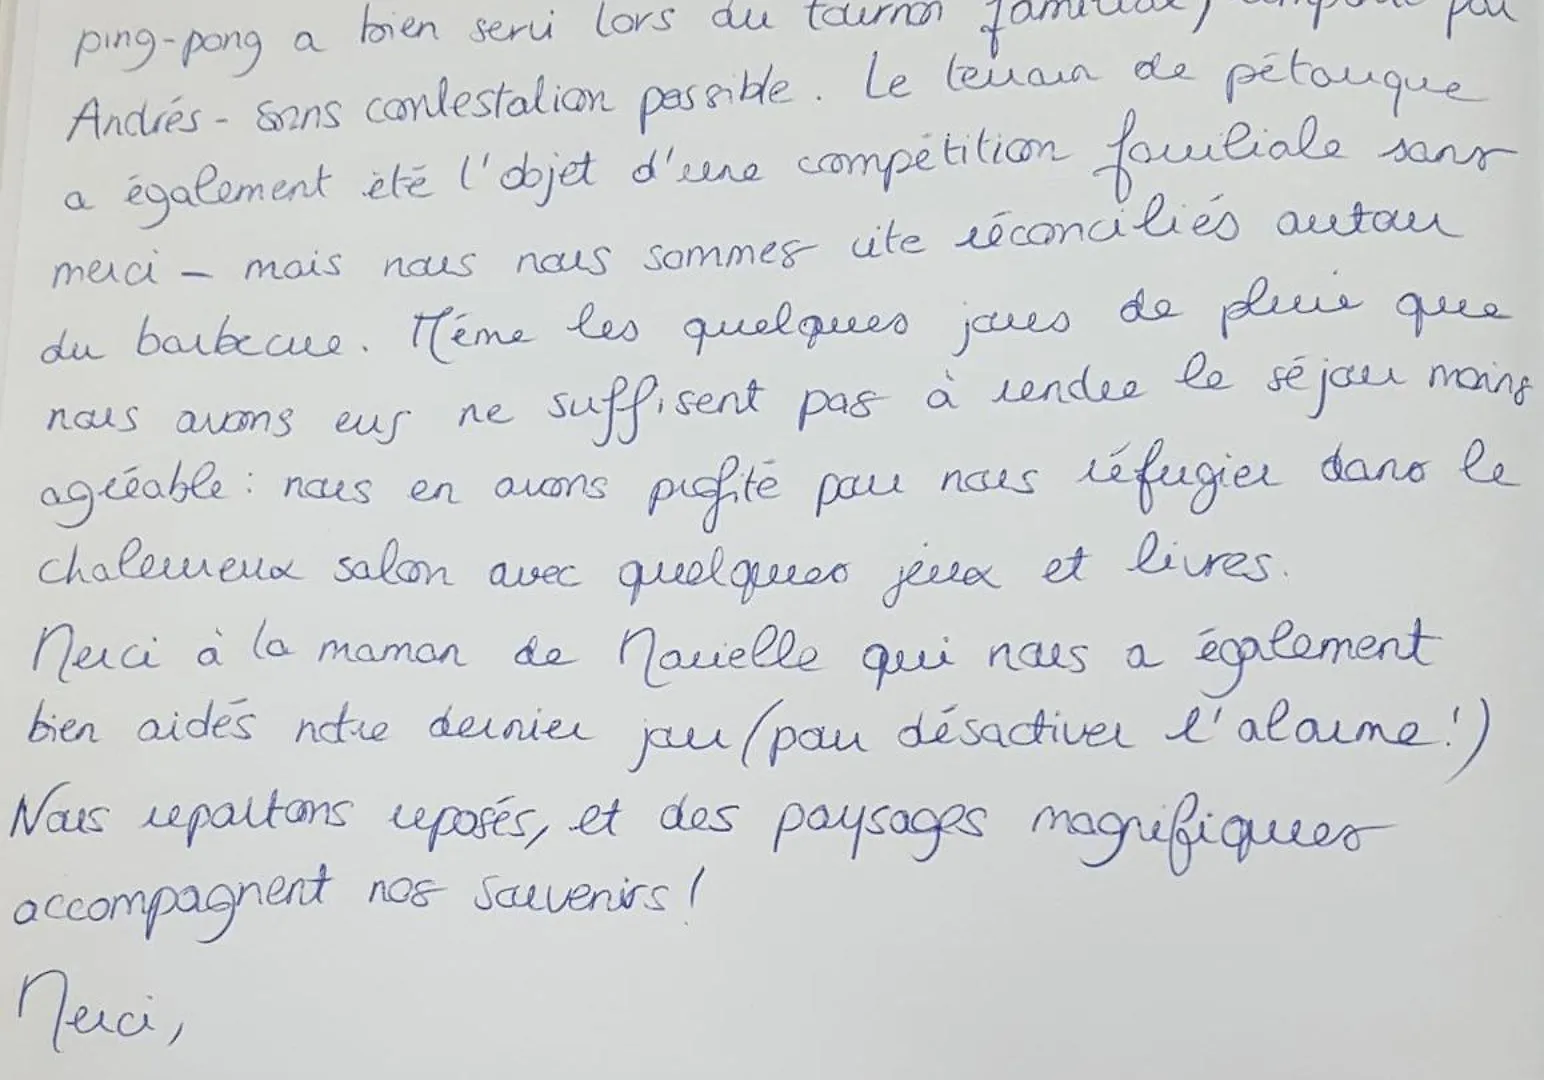 ping-pong a bien servi lors du tournoi familial, remporté par
Andrés - sans contestation possible. Le terrain de pétanque
a également été l'objet d'une compétition familiale sans
merci - mais nous nous sommes vite réconciliés autour
du barbecue. Même les quelques jours de pluie que
nous avons eus ne suffisent pas à rendre le séjour moins
agréable : nous en avons profité pour nous réfugier dans le
chaleureux salon avec quelques jeux et livres.
Merci à la maman de Marielle qui nous a également
bien aidés notre dernier jour (pour désactiver l'alarme!)
Nous repartons reposés, et des paysages magnifiques
accompagnent nos souvenirs!
Merci,